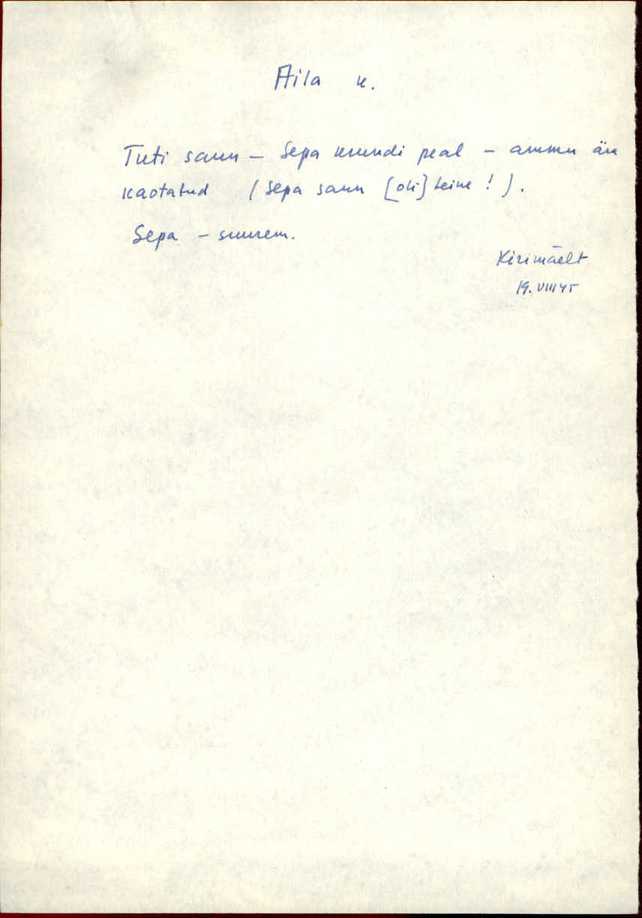 Aila k.
Tuti saun – Sepa krundi peal – ammu ära
kaotatud (Sepa saun [oli] teine!).
Sepa – suurem.
Kirimäelt
19. VIII 45